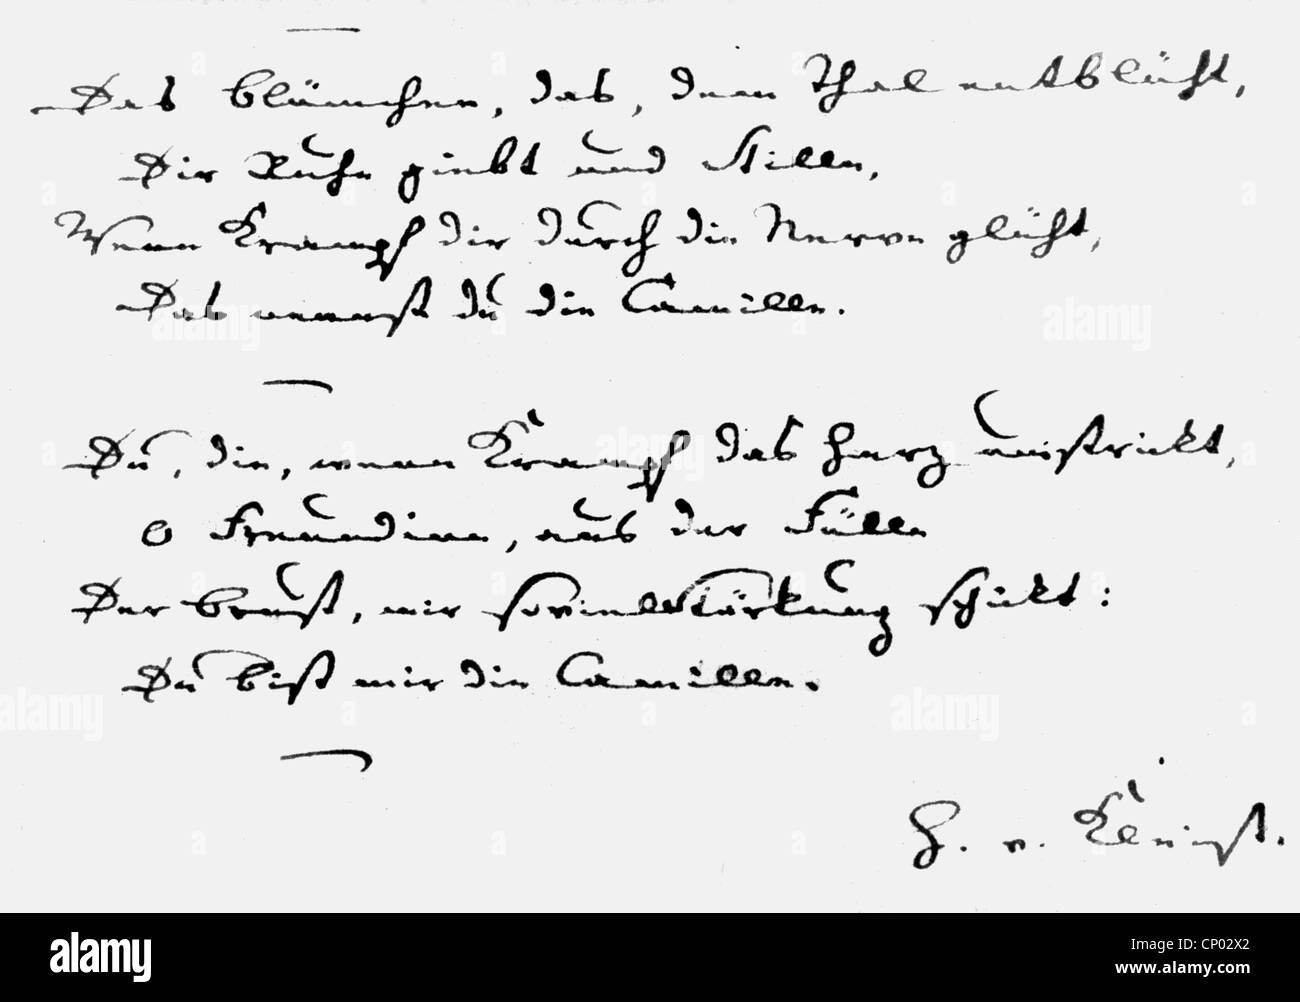 Das Blümchen, das, dem Thal entblüht,
Dir Ruhe giebt und Stille,
Wenn Krampf dir durch die Nerve glüht,
Das nennst du die Camille.
Du, die, wenn Krampf das Herz umstrickt,
O Freundinn, aus der Fülle
Der Brust, mir soviel Stärkung schickt:
Du bist mir die Camille.
H. v. Kleist.
alamy
Image ID: CP02X2
www.alamy.com